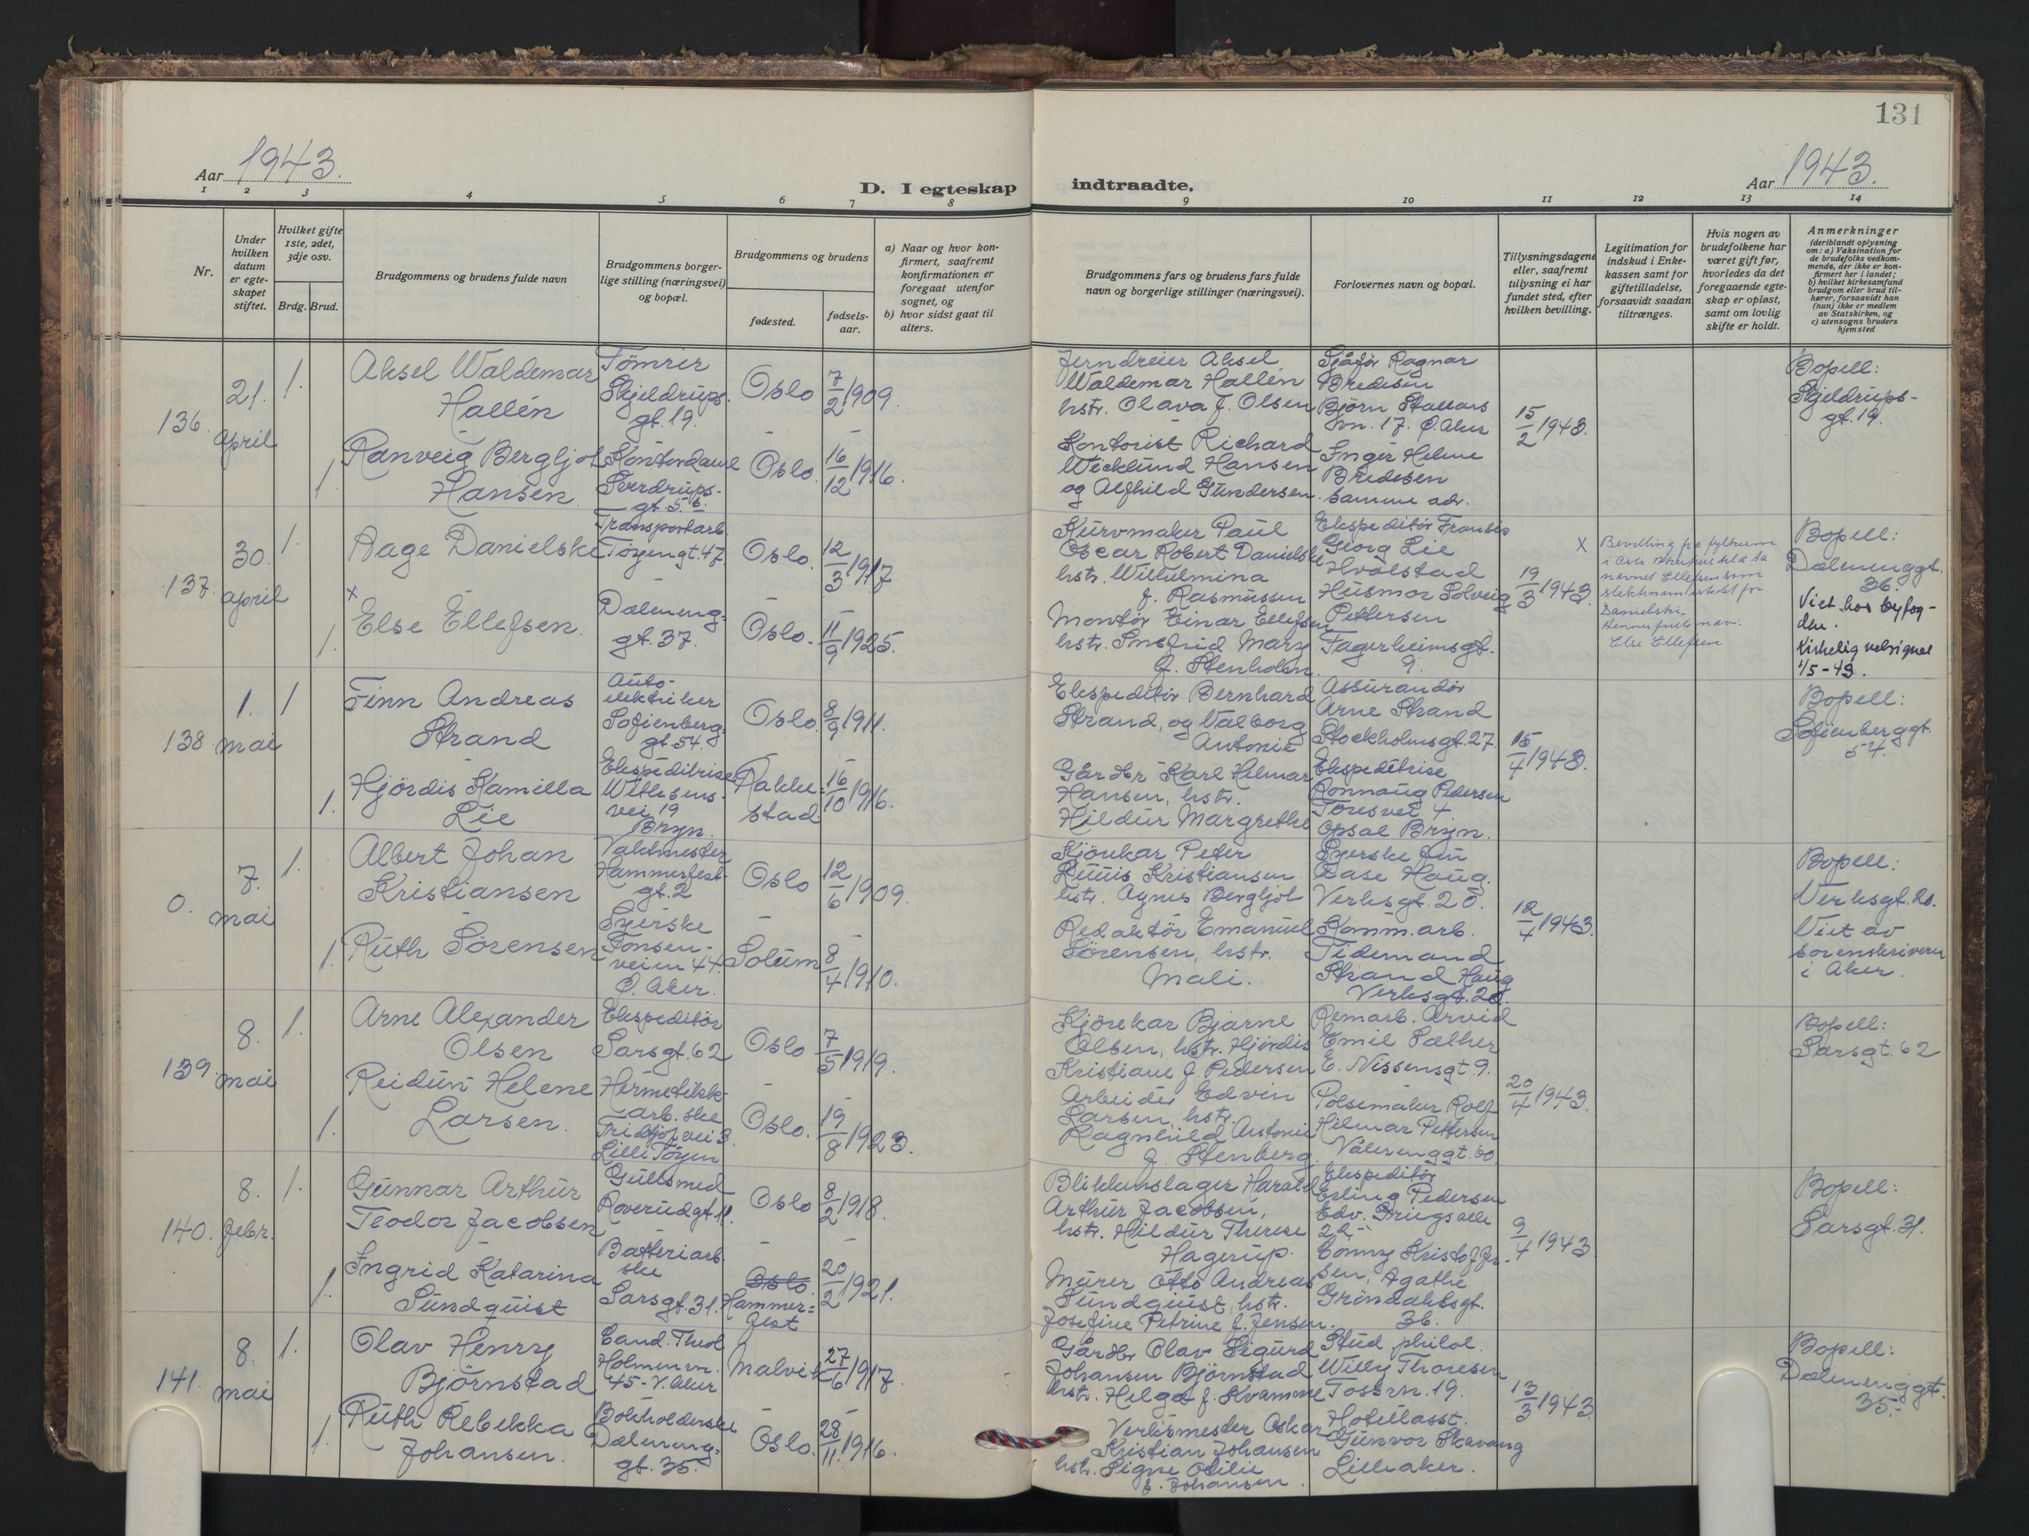 131
Aar 1943.
D. I egteskap indtraadte.
Aar 1943.
1 2 3 4 5 6 7 8 9 10 11 12 13 14
Nr.
Under hvilken datum er egte-skapet stiftet.
Hvilket gifte 1ste, 2det, 3dje osv.
Brdg. Brud.
Brudgommens og brudens fulde navn
Brudgommens borger-lige stilling (næringsvei) og bopæl.
Brudgommens og brudens
fødested.
fødsels-aar.
a) Naar og hvor kon-firmert, saafremt konfirmationen er foregaat utenfor sognet, og
b) hvor sidst gaat til alters.
Brudgommens fars og brudens fars fulde navn og borgerlige stillinger (næringsvei).
Forlovernes navn og bopæl.
Tillysningsdagene eller, saafremt tillysning ei har fundet sted, efter hvilken bevilling.
Legitimation for indskud i Enke-kassen samt for giftetilladelse, forsaavidt saadan tiltrænges.
Hvis nogen av brudefolkene har været gift før, hvorledes da det foregaaende egte-skap er opløst, samt om lovlig skifte er holdt.
Anmerkninger
(deriblandt oplysning om: a) Vaksination for de brudefolks vedkom-mende, der ikke er kon-firmert her i landet; b) hvilket kirkesamfund brudgom eller brud til-hører, forsaavidt han (hun) ikke er medlem av Statskirken, og c) utensogns bruders hjemsted
136. 21. april
1. Aksel Waldemar Hallén
Tømrer Skjeldrups-gt. 19.
Oslo 7/2 1909.
1. Ranveig Bergljot Hansen
Kontordame Sverdrups-gt. 5 b.
Oslo. 16/12 1916.
Jerndreier Aksel Waldemar Hallén hstr. Olava f. Olsen
Kontorist Richard Wicklund Hansen og Alfhild Gundersen.
Sjåfør Ragnar Bredesen Bjørn Stallars vn. 17. Ø. Aker
Inger Helene Bredesen samme adr.
15/2 1943.
Bopell: Skjeldrups-gt. 19.
137. 30. april
1. Aage Danielski
Transportarb. Tøyengt. 47
Oslo. 12/3 1917
x
1. Else Ellefsen.
Dæleneng-gt. 37.
Oslo. 11/9 1925.
Kurvmaker Paul Oscar Robert Danielski hstr. Wilhelmina f. Rasmussen
Montør Einar Ellefsen hstr. Snefrid Mary f. Stenholen.
Ekspeditør Frantz Georg Lie Hvalstad
Husmor Solveig Pettersen Fagerheimsgt. 9.
19/3 1943.
x Bevilling fra fylkesm i Oslo Akershus til å ta navnet Ellefsen som slektnavn istedet for Danielski. Hennes fulle navn: Else Ellefsen
Bopell: Dælenenggt. 36.
Viet hos byfog-den.
Kirkelig velsignet 1/5-43.
138. 1. mai
1 Finn Andreas Strand
Auto-elektriker Sofienberg-gt. 54.
Oslo. 8/9 1911.
1. Hjördis Kamilla Lie
Ekspeditrise Withsens-vei 19 Bryn.
Rakke-stad 16/10 1916.
Ekspeditör Bernhard Strand, og Valborg Antonie
Gårdbr. Karl Hilmar Hansen, hstr. Hildur Margrethe
Assurandör Arne Strand Stockholmsgt. 27.
Ekspeditrise Rönnaug Pedersen Töresvei 4. Opsal Bryn.
15/4 1943.
Bopell: Sofienberggt. 54.
0. 7. mai
1. Albert Johan Kristiansen
Vaktmester Hammerfest-gt. 2
Oslo 12/6 1909.
1. Ruth Sörensen
Syerske Tonsen-veien 44 Ø. Aker.
Solum 8/4 1910.
Kjörekar Peter Kristiansen hstr. Agnes Bergljot
Redaktör Emanuel Sörensen, hstr. Mali.
Syerske fru Aase Haug. Verksgt. 20.
Komm. arb. Tidemand Strand Haug Verksgt. 20.
12/4 1943.
Bopell: Verksgt. 20.
Viet av sorenskriveren i Aker.
139. 8. mai
1. Arne Alexander Olsen
Ekspeditör Sarsgt. 62
Oslo 7/5 1919.
1. Reidun Helene Larsen.
Hermetikk-arb. ske Fridtjofvei 3 Lille Töyen
Oslo. 19/8 1923.
Kjörekar Bjarne Olsen, hstr. Hjördis Kristiane f. Pedersen
Arbeider Edvin Larsen, hstr. Ragnhild Antonie f. Stenberg.
Remarb. Arvid Emil Sæther E. Nissensgt. 9.
Pölsemaker Rolf Hilmar Pettersen Vålerenggt. 60
20/4 1943.
Bopell: Sarsgt. 62
140. 8. febr.
1. Gunnar Arthur Teodor Jacobsen
Gullsmed Roverudgt. 11.
Oslo 8/2 1918.
1. Ingrid Katarina Sundquist
Batteriarb. ske Sarsgt. 31.
Oslo. Hammer-fest 20/2 1921.
Blikkenslager Harald Arthur Jacobsen, hstr. Hildur Therese Hagerup.
Murer Otto Andreas Sundquist, hstr. Josefine Petrine f. Jensen.
Ekspeditör Erling Pedersen Edv. Griegs alle 22.
Conny Kristoffer-sen, Agathe Gröndahlsgt. 36.
9/4 1943
Bopell: Sarsgt. 31.
141. 8. mai
1. Olav Henry Björnstad
Cand. Theol Holmenvn. 45 - V. Aker
Malvik 27/6 1917.
1. Ruth Rebekka Johansen.
Bokholderske Dælneng-gt. 35.
Oslo. 28/11 1916.
Gårdbr. Olav Sigurd Johansen Bjørnstad hstr. Helga f. Kvamme
Verksmester Oskar Kristian Johansen hstr. Signe Otilie f. Johansen.
Stud philol. Willy Thoresen Tåsenvn. 19.
Hotellasst. Gunvor Skavang Lilleaker.
13/3 1943.
Bopell: Dælenenggt. 35.